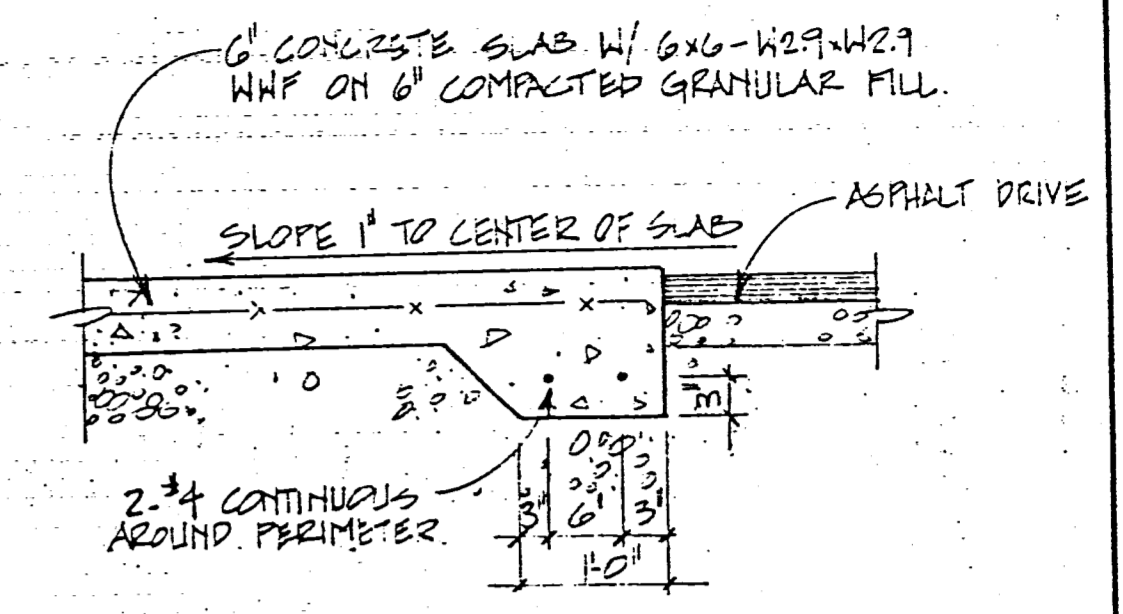 6" CONCRETE SLAB W/ 6x6-W2.9xW2.9
WWF ON 6" COMPACTED GRANULAR FILL.
ASPHALT DRIVE
SLOPE 1" TO CENTER OF SLAB
3"
2-#4 CONTINUOUS
AROUND PERIMETER.
3" 6" 3"
1'-0"